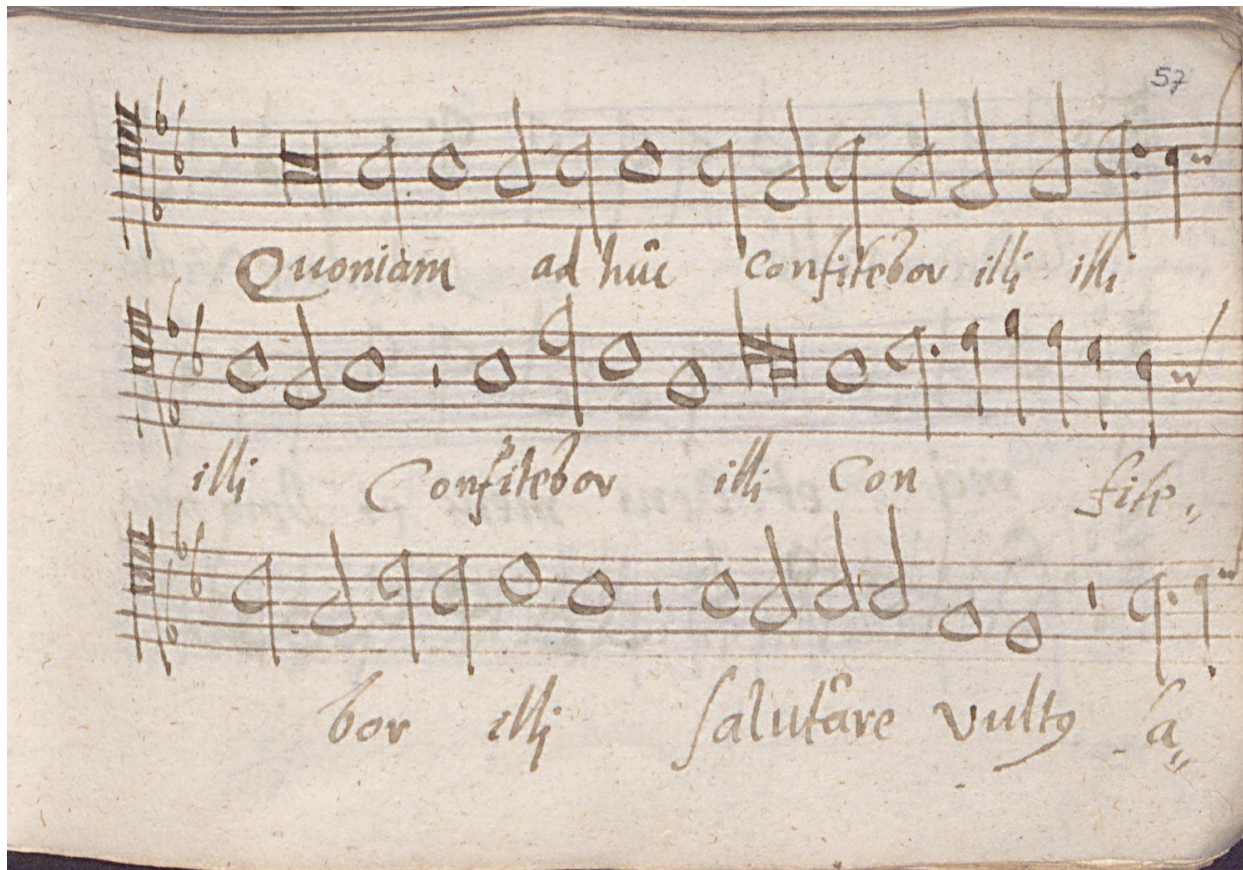 57
Quoniam ad hûc confitebor illi illi
illi Confitebor illi Con fite„
bor illi salutâre vultꝰ sa„